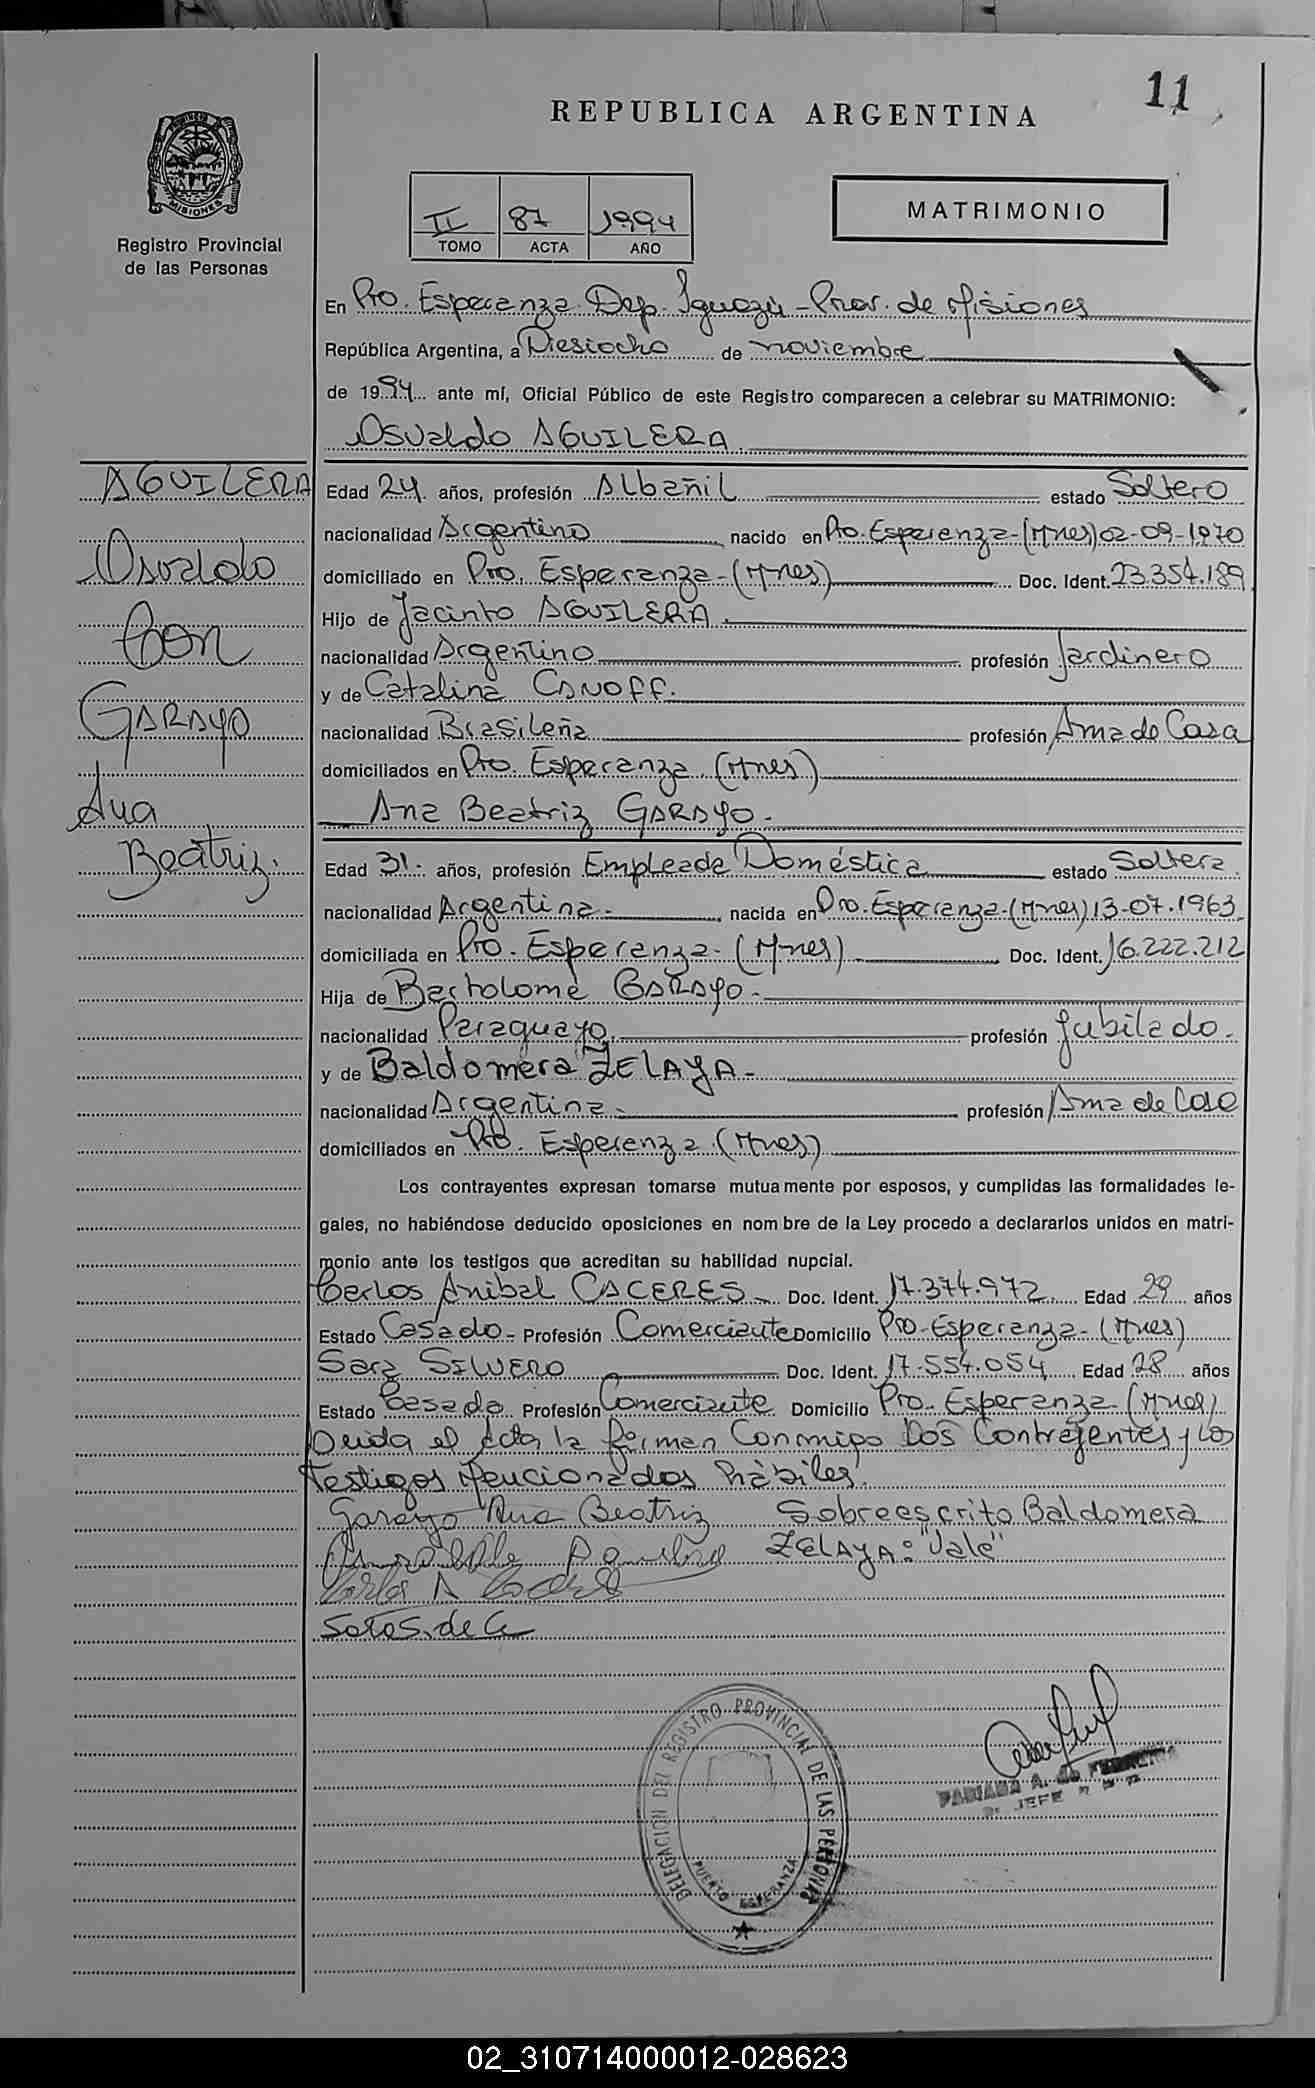 11
REPUBLICA ARGENTINA
PROVINCIA DE
MISIONES
Registro Provincial
de las Personas
II 87 1994
TOMO ACTA AÑO
MATRIMONIO
En Pto. Esperanza Dep. Iguazú - Prov. de Misiones
República Argentina, a Diesiocho de noviembre
de 1994 ante mí, Oficial Público de este Registro comparecen a celebrar su MATRIMONIO:
Osvaldo AGUILERA
AGUILERA
Osvaldo
Con
GARAYO
Ana
Beatriz.
Edad 24 años, profesión Albañil estado Soltero
nacionalidad Argentino nacido en Pto. Esperanza-(Mnes) 02-09-1970
domiciliado en Pto. Esperanza-(Mnes) Doc. Ident. 23.354.189
Hijo de Jacinto AGUILERA.
nacionalidad Argentino profesión Jardinero
y de Catalina CANOFF.
nacionalidad Brasileña profesión Ama de Casa
domiciliados en Pto. Esperanza (Mnes)
Ana Beatriz GARAYO.-
Edad 31.- años, profesión Empleada Doméstica estado Soltera
nacionalidad Argentina.- nacida en Pto. Esperanza-(Mnes) 13-07-1963
domiciliada en Pto. Esperanza-(Mnes) Doc. Ident. 16.222.212
Hija de Bartholomé GARAYO.-
nacionalidad Paraguayo. profesión Jubilado.-
y de Baldomera ZELAYA.-
nacionalidad Argentina.- profesión Ama de Casa
domiciliados en Pto. Esperanza (Mnes)
Los contrayentes expresan tomarse mutuamente por esposos, y cumplidas las formalidades le-
gales, no habiéndose deducido oposiciones en nombre de la Ley procedo a declararlos unidos en matri-
monio ante los testigos que acreditan su habilidad nupcial.
Carlos Anibal CACERES Doc. Ident. 17.374.972 Edad 29 años
Estado Casado- Profesión Comerciante Domicilio Pto-Esperanza-(Mnes)
Sara SILVERO Doc. Ident. 17.554.054 Edad 28 años
Estado Casada Profesión Comerciante Domicilio Pto. Esperanza (Mnes)
Leída el Acta la firman Conmigo Los Contrayentes y Los
Testigos Mencionados hábiles.
Garayo Ana Beatriz Sobreescrito Baldomera
Osvaldo Aguilera ZELAYA: "Vale"
Carlos A
Sara S. de C
DELEGACION DEL REGISTRO PROVINCIAL DE LAS PERSONAS
PUERTO ESPERANZA
FABIANA A. de FERREIRA
JEFE
02_310714000012-028623